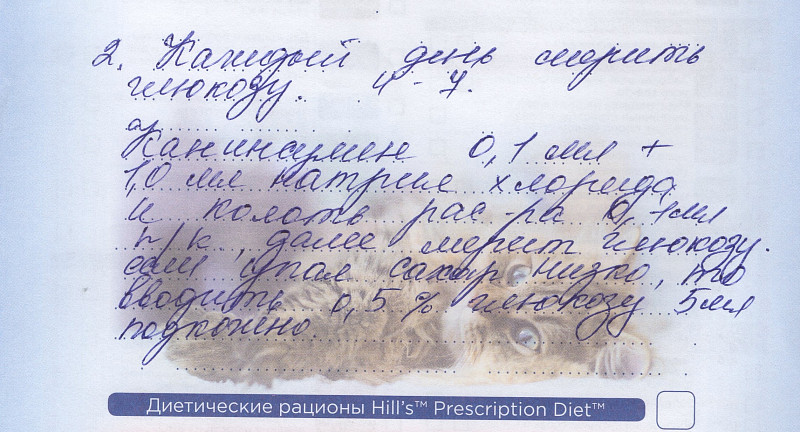 2. Каждый день мерить
глюкозу. 4-7.
а)
Канинсулин 0,1 мл +
1,0 мл натрия хлорида
и колоть рас-ра 0,1мл
п/к, далее мерит глюкозу.
если упал сахар низко, то
вводить 0,5% глюкозу 5мл
подкожно.
Диетические рационы Hill's™ Prescription Diet™